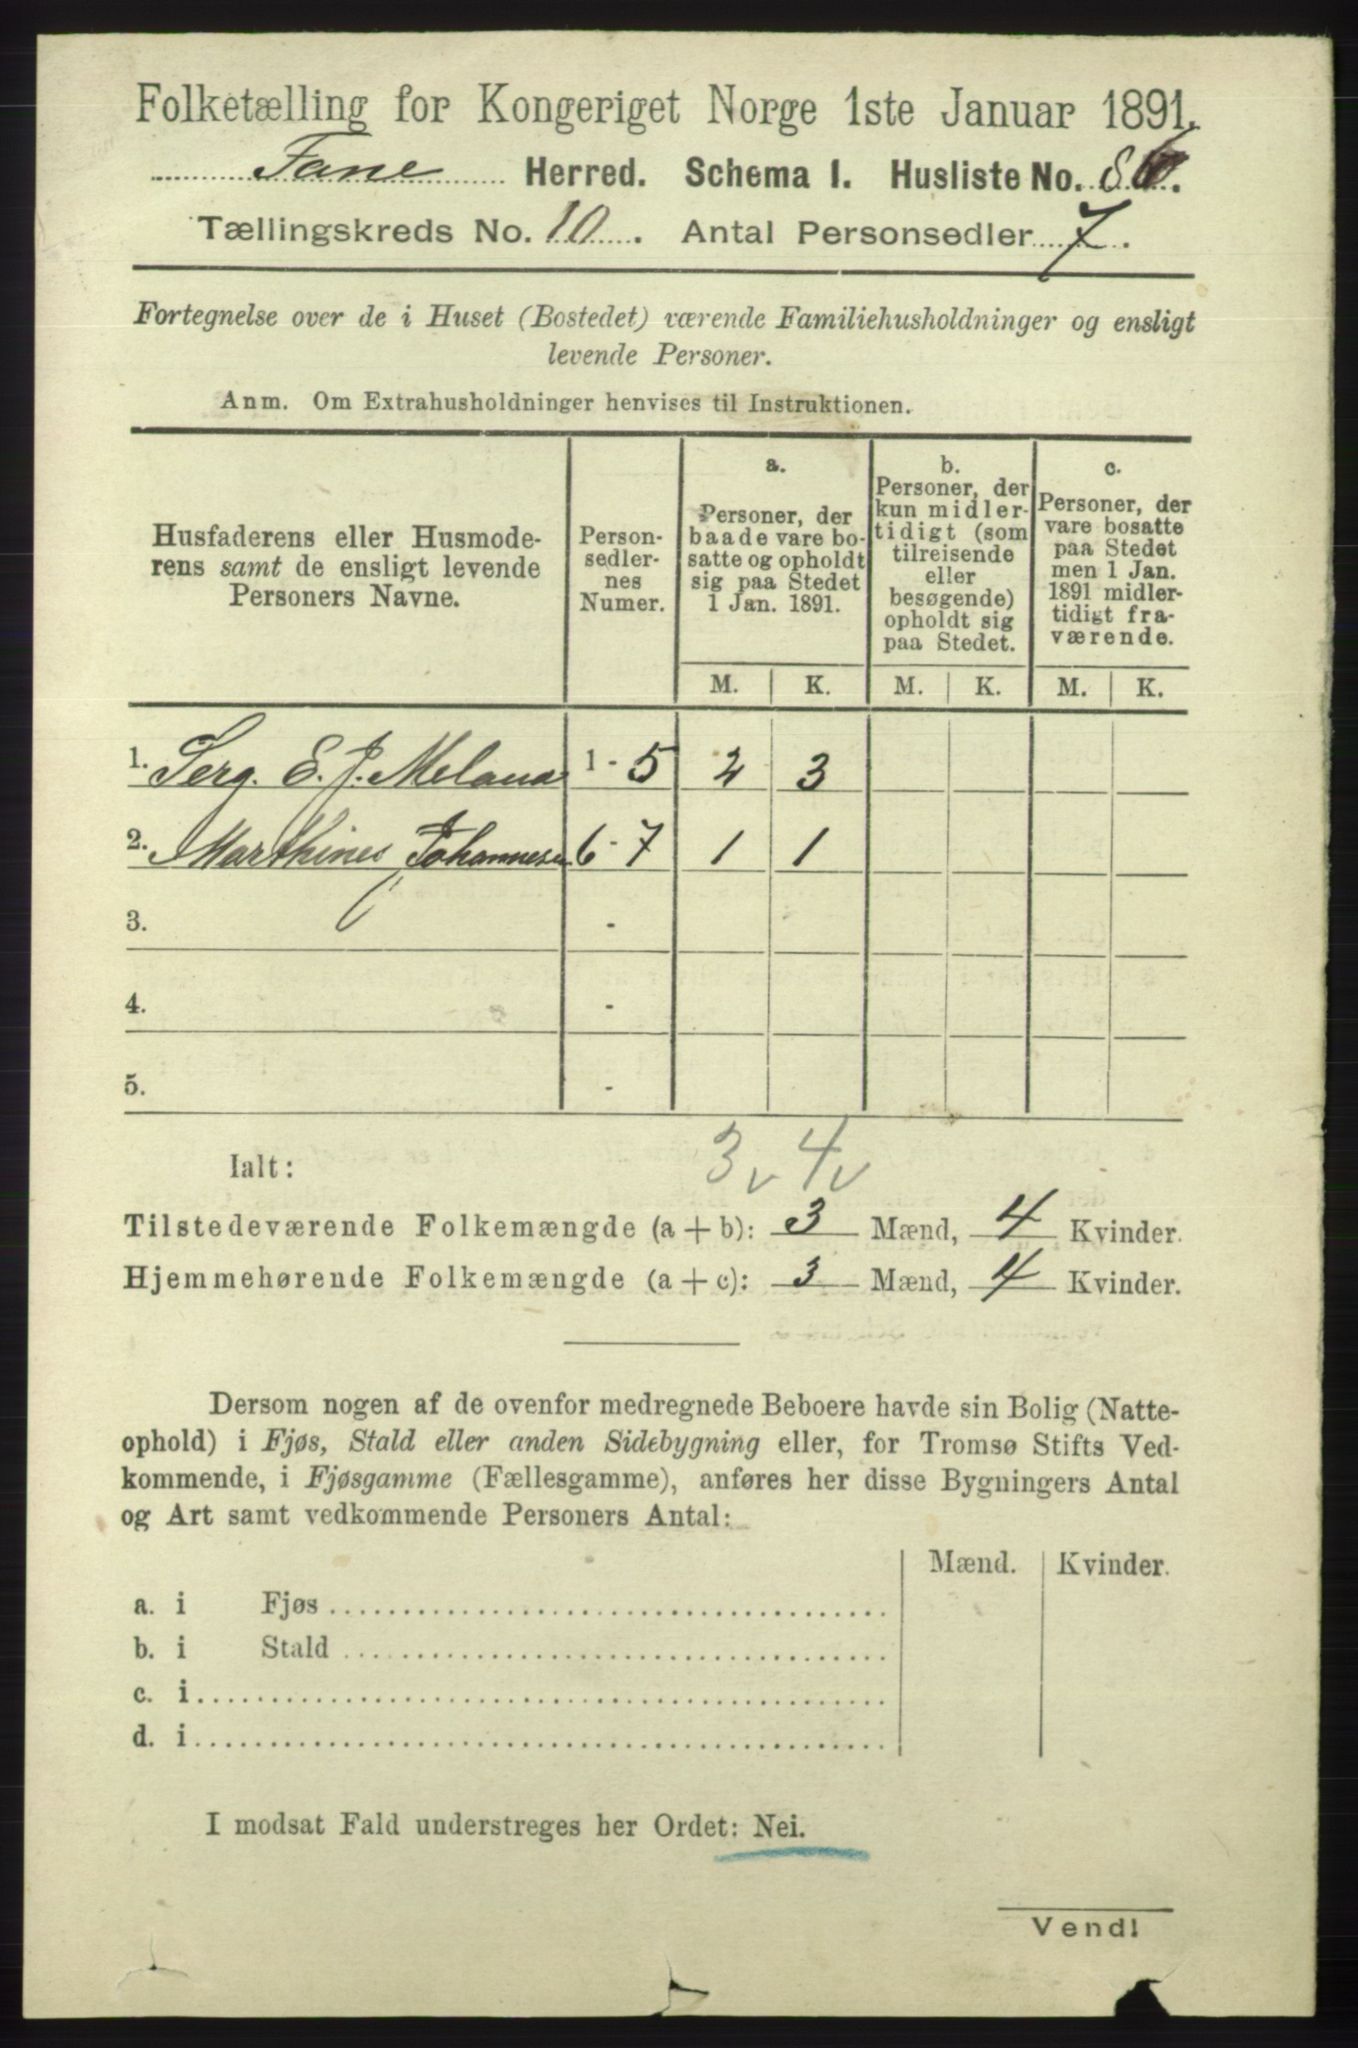 Folketælling for Kongeriget Norge 1ste Januar 1891.
Fane Herred. Schema I. Husliste No. 86.
Tællingskreds No. 10. Antal Personsedler 7.
Fortegnelse over de i Huset (Bostedet) værende Familiehusholdninger og ensligt
levende Personer.
Anm. Om Extrahusholdninger henvises til Instruktionen.
Husfaderens eller Husmode-
rens samt de ensligt levende
Personers Navne.
Person-
sedler-
nes
Numer.
a.
Personer, der
baade vare bo-
satte og opholdt
sig paa Stedet
1 Jan. 1891.
b.
Personer, der
kun midler-
tidigt (som
tilreisende
eller
besøgende)
opholdt sig
paa Stedet.
c.
Personer, der
vare bosatte
paa Stedet
men 1 Jan.
1891 midler-
tidigt fra-
værende.
M. K. M. K. M. K.
1. Serg. E. J. 1 - 5 2 3
2. Marthines Johannesen 6 - 7 1 1
3. -
4. -
5. -
3 v 4 v
Ialt:
Tilstedeværende Folkemængde (a + b): 3 Mænd, 4 Kvinder.
Hjemmehørende Folkemængde (a + c): 3 Mænd, 4 Kvinder.
Dersom nogen af de ovenfor medregnede Beboere havde sin Bolig (Natte-
ophold) i Fjøs, Stald eller anden Sidebygning eller, for Tromsø Stifts Ved-
kommende, i Fjøsgamme (Fællesgamme), anføres her disse Bygningers Antal
og Art samt vedkommende Personers Antal:
Mænd. Kvinder.
a. i Fjøs
b. i Stald
c. i
d. i
I modsat Fald understreges her Ordet: Nei.
Vend!